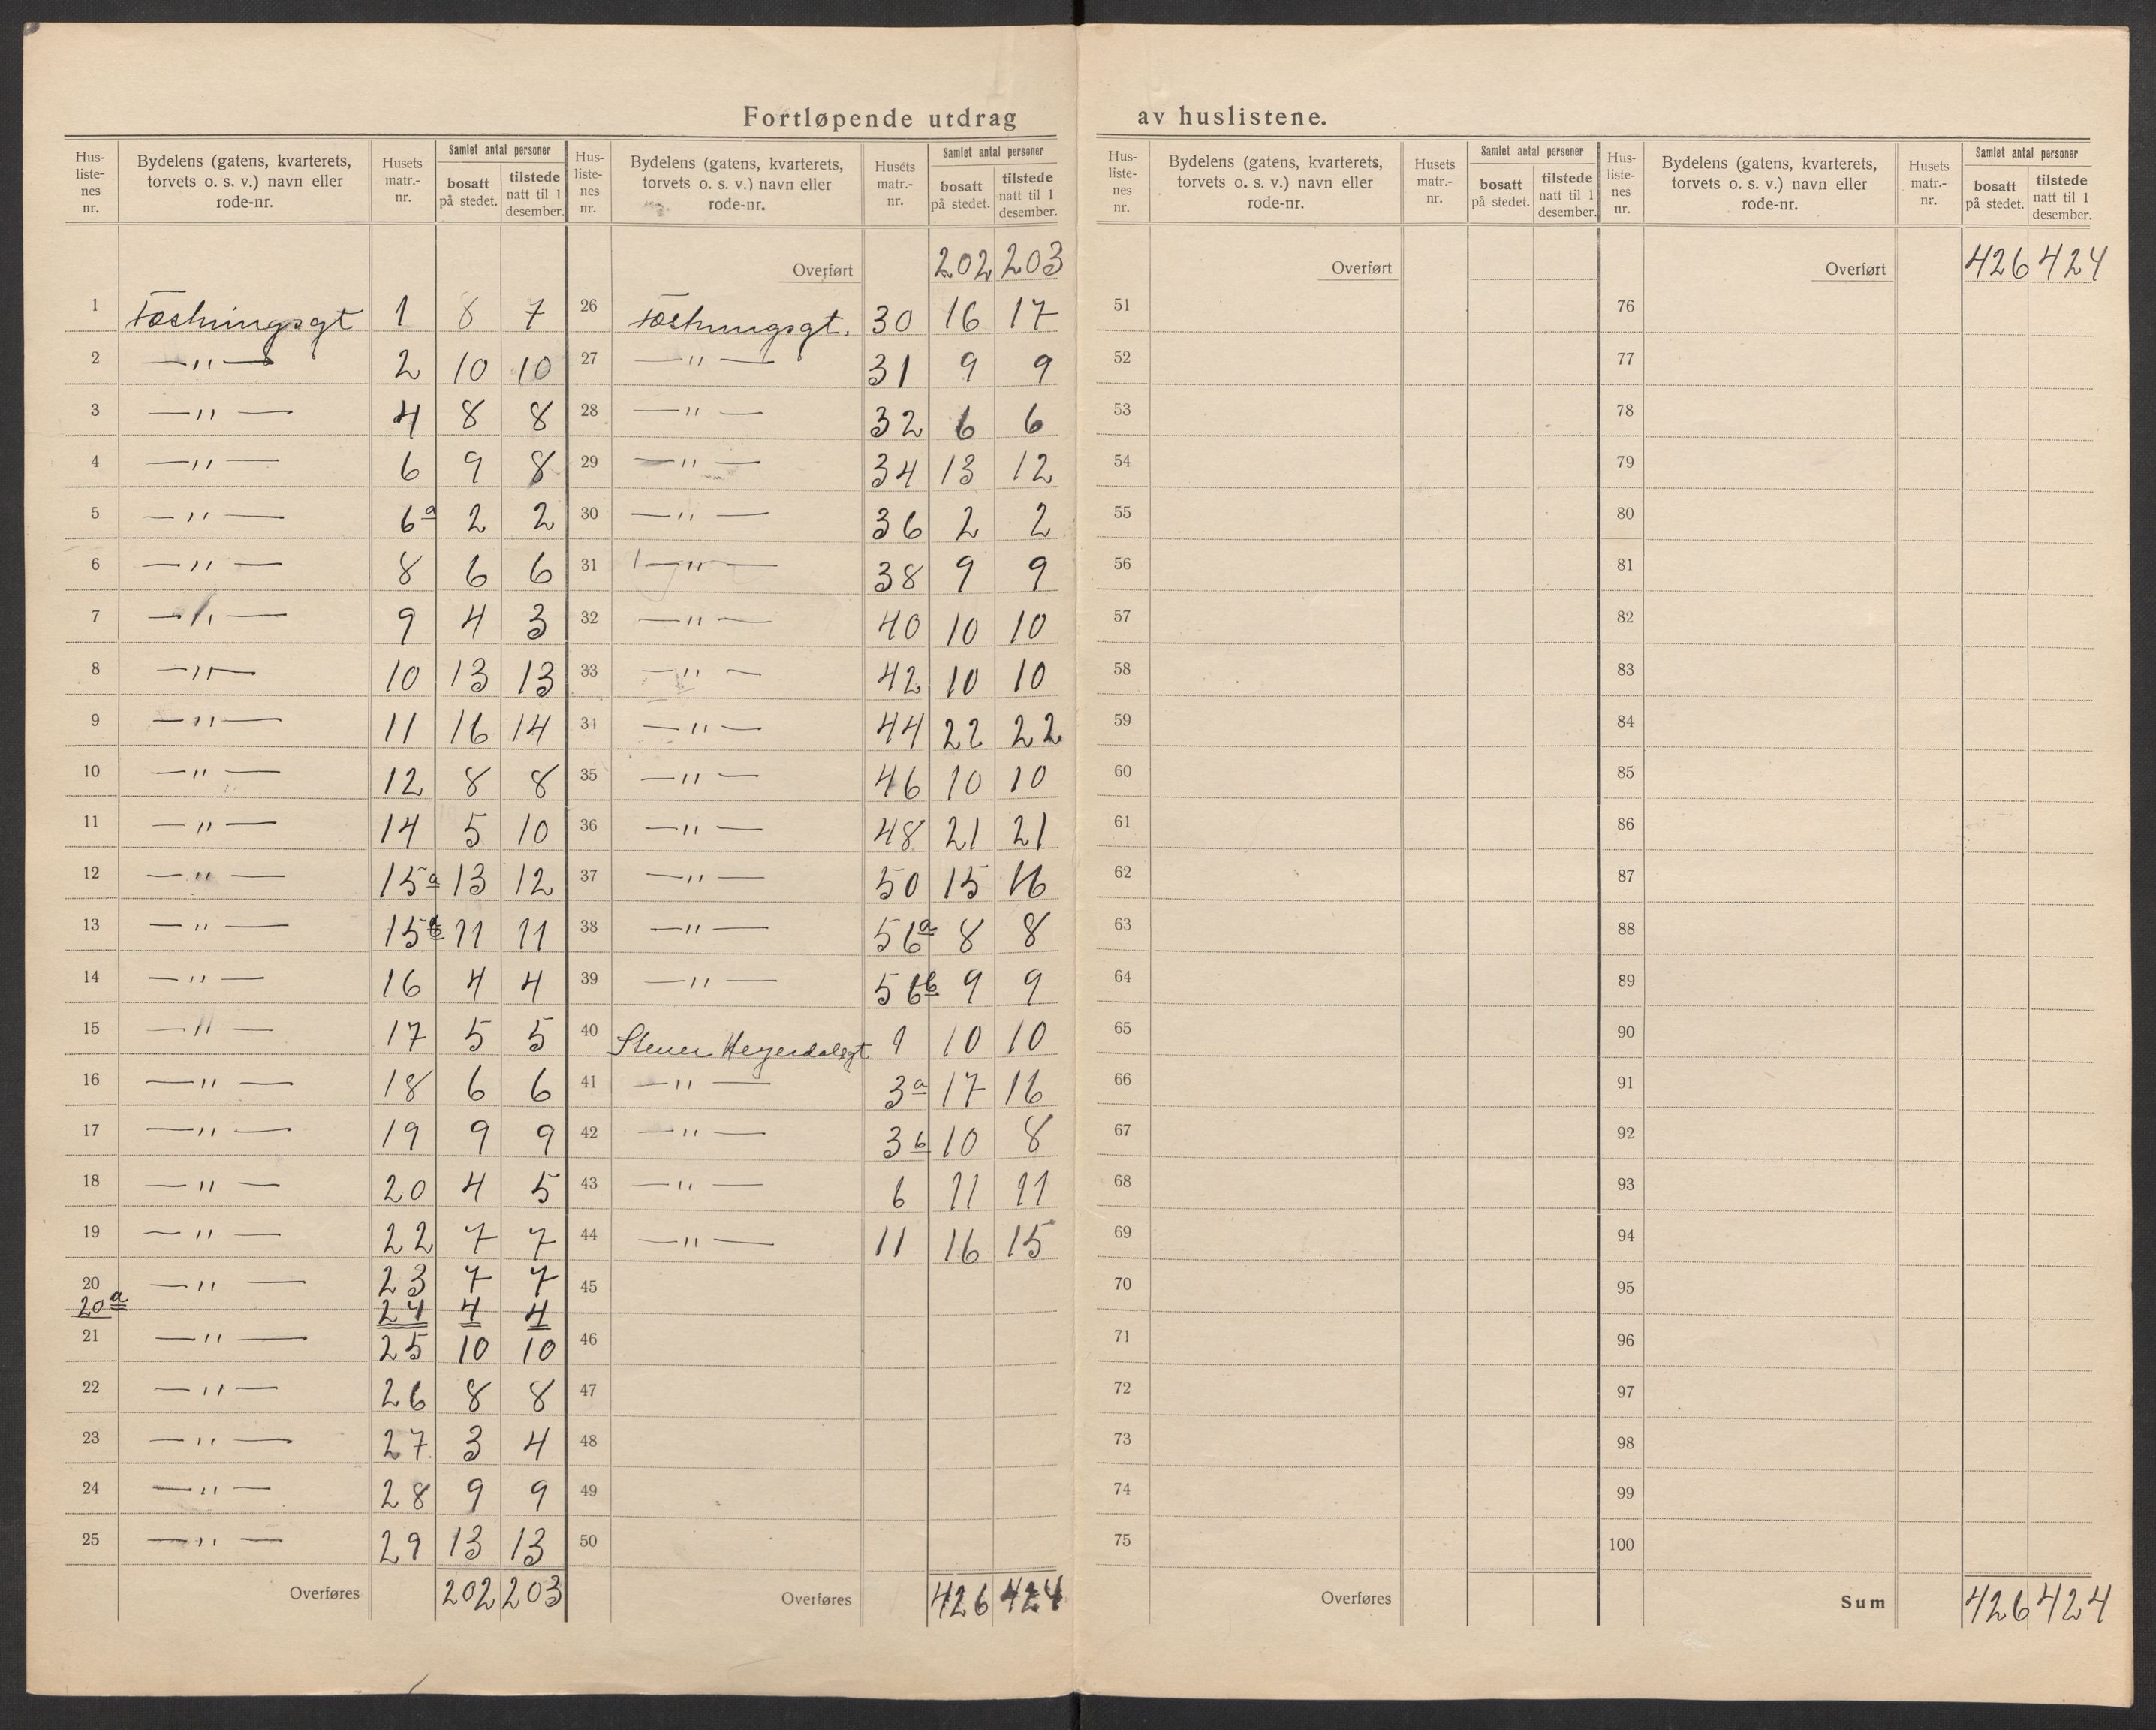 Fortløpende utdrag av huslistene.
Hus-listenes nr. Bydelens (gatens, kvarterets, torvets o. s. v.) navn eller rode-nr. Husets matr.-nr. Samlet antal personer bosatt på stedet. tilstede natt til 1 desember.
1 Fæstningsgt 1 8 7
2 —"— 2 10 10
3 —"— 4 8 8
4 —"— 6 9 8
5 —"— 6a 2 2
6 —"— 8 6 6
7 —"— 9 4 3
8 —"— 10 13 13
9 —"— 11 16 14
10 —"— 12 8 8
11 —"— 14 5 10
12 —"— 15a 13 12
13 —"— 15b 11 11
14 —"— 16 4 4
15 —"— 17 5 5
16 —"— 18 6 6
17 —"— 19 9 9
18 —"— 20 4 5
19 —"— 22 7 7
20 —"— 23 7 7
20a 24 4 4
21 —"— 25 10 10
22 —"— 26 8 8
23 —"— 27 3 4
24 —"— 28 9 9
25 —"— 29 13 13
Overføres 202 203
Hus-listenes nr. Bydelens (gatens, kvarterets, torvets o. s. v.) navn eller rode-nr. Husets matr.-nr. Samlet antal personer bosatt på stedet. tilstede natt til 1 desember.
Overført 202 203
26 Fæstningsgt. 30 16 17
27 —"— 31 9 9
28 —"— 32 6 6
29 —"— 34 13 12
30 —"— 36 2 2
31 —"— 38 9 9
32 —"— 40 10 10
33 —"— 42 10 10
34 —"— 44 22 22
35 —"— 46 10 10
36 —"— 48 21 21
37 —"— 50 15 16
38 —"— 56a 8 8
39 —"— 56b 9 9
40 Heyerdalsgt 1 10 10
41 —"— 3a 17 16
42 —"— 3b 10 8
43 —"— 6 11 11
44 —"— 11 16 15
45
46
47
48
49
50
Overføres 426 424
Hus-listenes nr. Bydelens (gatens, kvarterets, torvets o. s. v.) navn eller rode-nr. Husets matr.-nr. Samlet antal personer bosatt på stedet. tilstede natt til 1 desember.
Overført
51
52
53
54
55
56
57
58
59
60
61
62
63
64
65
66
67
68
69
70
71
72
73
74
75
Overføres
Hus-listenes nr. Bydelens (gatens, kvarterets, torvets o. s. v.) navn eller rode-nr. Husets matr.-nr. Samlet antal personer bosatt på stedet. tilstede natt til 1 desember.
Overført 426 424
76
77
78
79
80
81
82
83
84
85
86
87
88
89
90
91
92
93
94
95
96
97
98
99
100
Sum 426 424